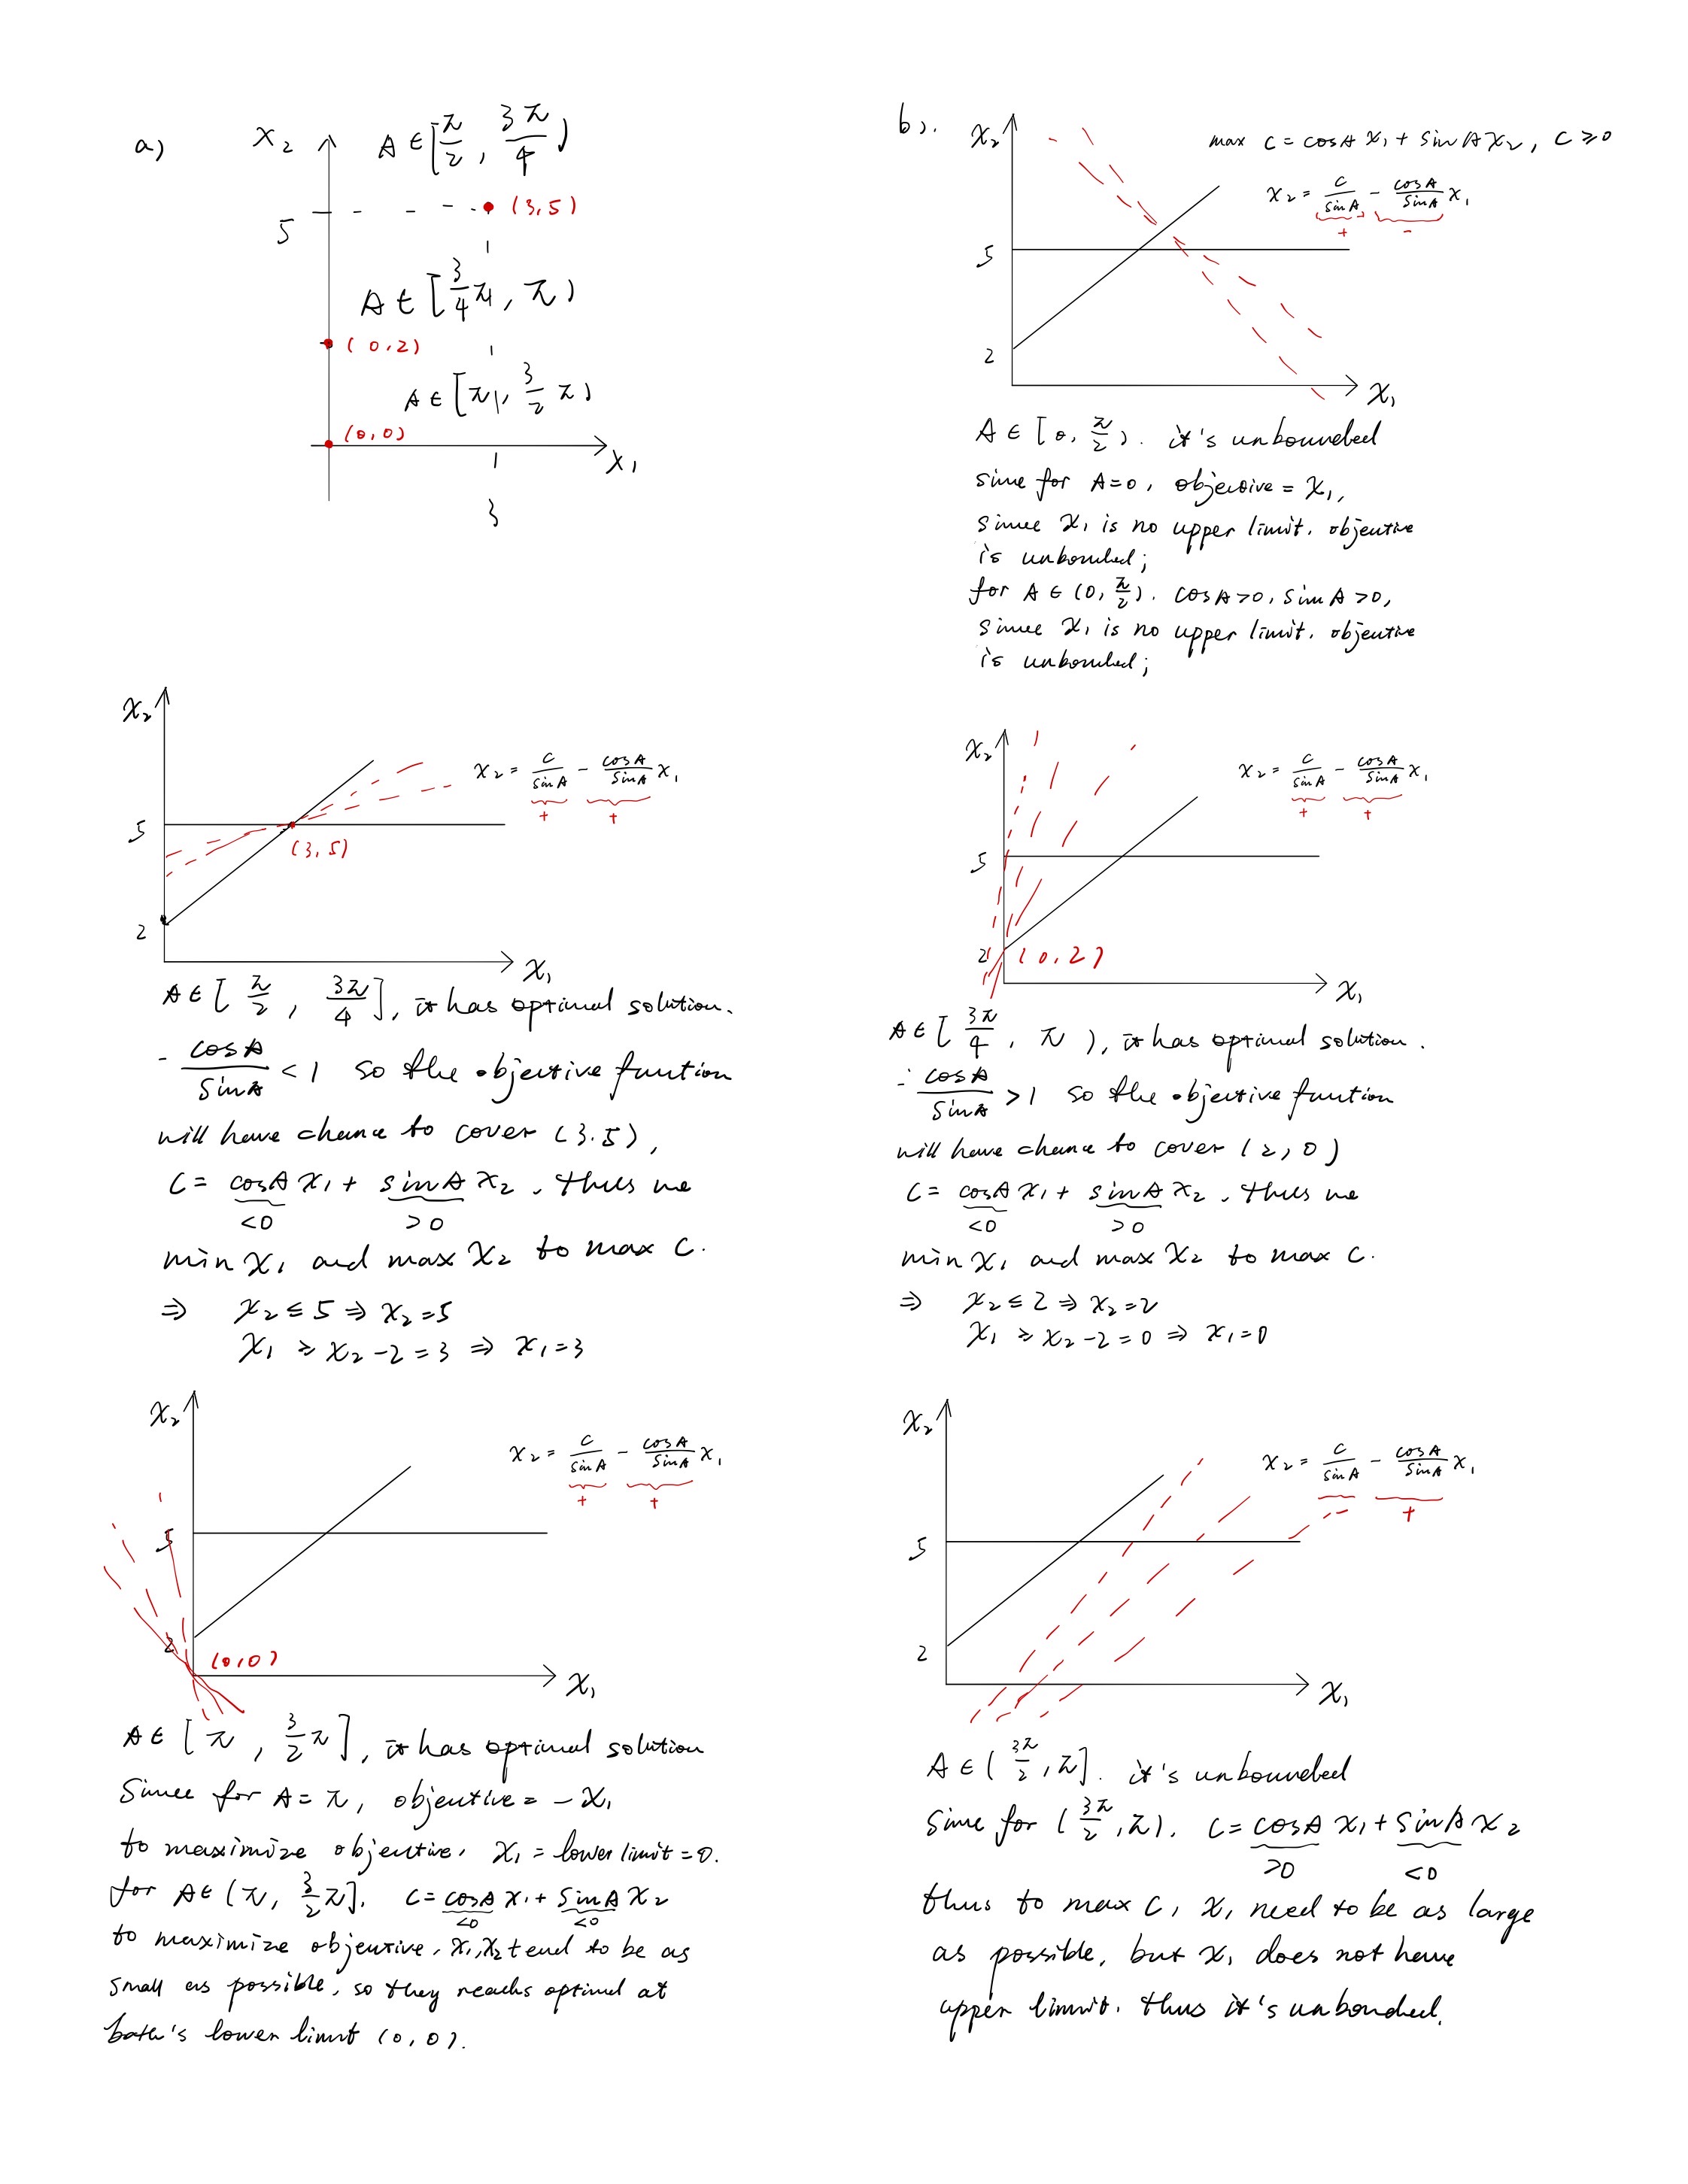 a)
x₂
A ∈ [π/2, 3π/4)
5
(3,5)
A ∈ [3/4 π, π)
(0,2)
A ∈ [π, 3/2 π)
(0,0)
x₁
3
b).
x₂
max C = cosA x₁ + sinA x₂, C ≥ 0
x₂ = C/sinA - cosA/sinA x₁
+ -
5
2
x₁
A ∈ [0, π/2). it's unbounded
sine for A=0, objective = x₁,
since x₁ is no upper limit. objective
is unbounded;
for A ∈ (0, π/2). cosA>0, sinA>0,
since x₁ is no upper limit. objective
is unbounded;
x₂
x₂ = C/sinA - cosA/sinA x₁
+ +
5
(3,5)
2
x₁
A ∈ [π/2, 3π/4], it has optimal solution.
- cosA/sinA < 1 so the objective funtion
will have chance to cover (3.5),
C = cosA x₁ + sinA x₂. thus we
<0 >0
min x₁ and max x₂ to max C.
⇒ x₂ ≤ 5 ⇒ x₂ = 5
x₁ ≥ x₂ - 2 = 3 ⇒ x₁ = 3
x₂
x₂ = C/sinA - cosA/sinA x₁
+ +
5
2
(0,2)
x₁
A ∈ [3π/4, π), it has optimal solution.
- cosA/sinA > 1 so the objective funtion
will have chance to cover (2,0)
C = cosA x₁ + sinA x₂. thus we
<0 >0
min x₁ and max x₂ to max C.
⇒ x₂ ≤ 2 ⇒ x₂ = 2
x₁ ≥ x₂ - 2 = 0 ⇒ x₁ = 0
x₂
x₂ = C/sinA - cosA/sinA x₁
+ +
5
2
(0,0)
x₁
A ∈ [π, 3/2 π], it has optimal solution
Since for A = π, objective = - x₁
to maximize objective, x₁ = lower limit = 0.
for A ∈ (π, 3/2 π]. C = cosA x₁ + sinA x₂
<0 <0
to maximize objective, x₁,x₂ tend to be as
small as possible, so they reachs optimal at
both's lower limit (0,0).
x₂
x₂ = C/sinA - cosA/sinA x₁
- +
5
2
x₁
A ∈ (3π/2, π]. it's unbounded
Sine for (3π/2, π). C = cosA x₁ + sinA x₂
>0 <0
thus to max C, x₁ need to be as large
as possible, but x₁ does not have
upper limit. thus it's unbonded.